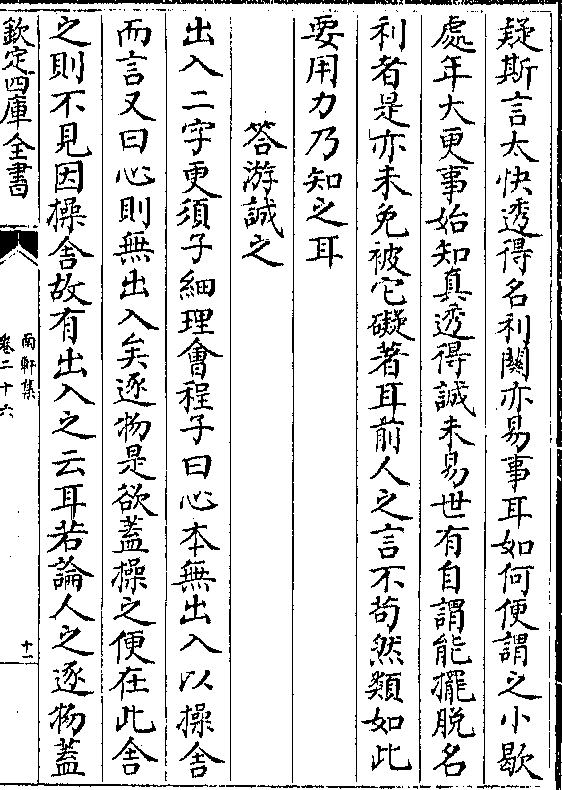 疑斯言太快透得名利關亦易事耳如何便謂之小歇
處年大更事始知真透得誠未易世有自謂能擺脫名
利者是亦未免被它礙著耳前人之言不茍然類如此
要用力乃知之耳
答游誠之
出入二字更須子細理會程子曰心本無出入以操舍
而言又曰心則無出入矣逐物是欲蓋操之便在此舍
之則不見因操舍故有出入之云耳若論人之逐物蓋
欽定四庫全書
南軒集
卷二十六
十二